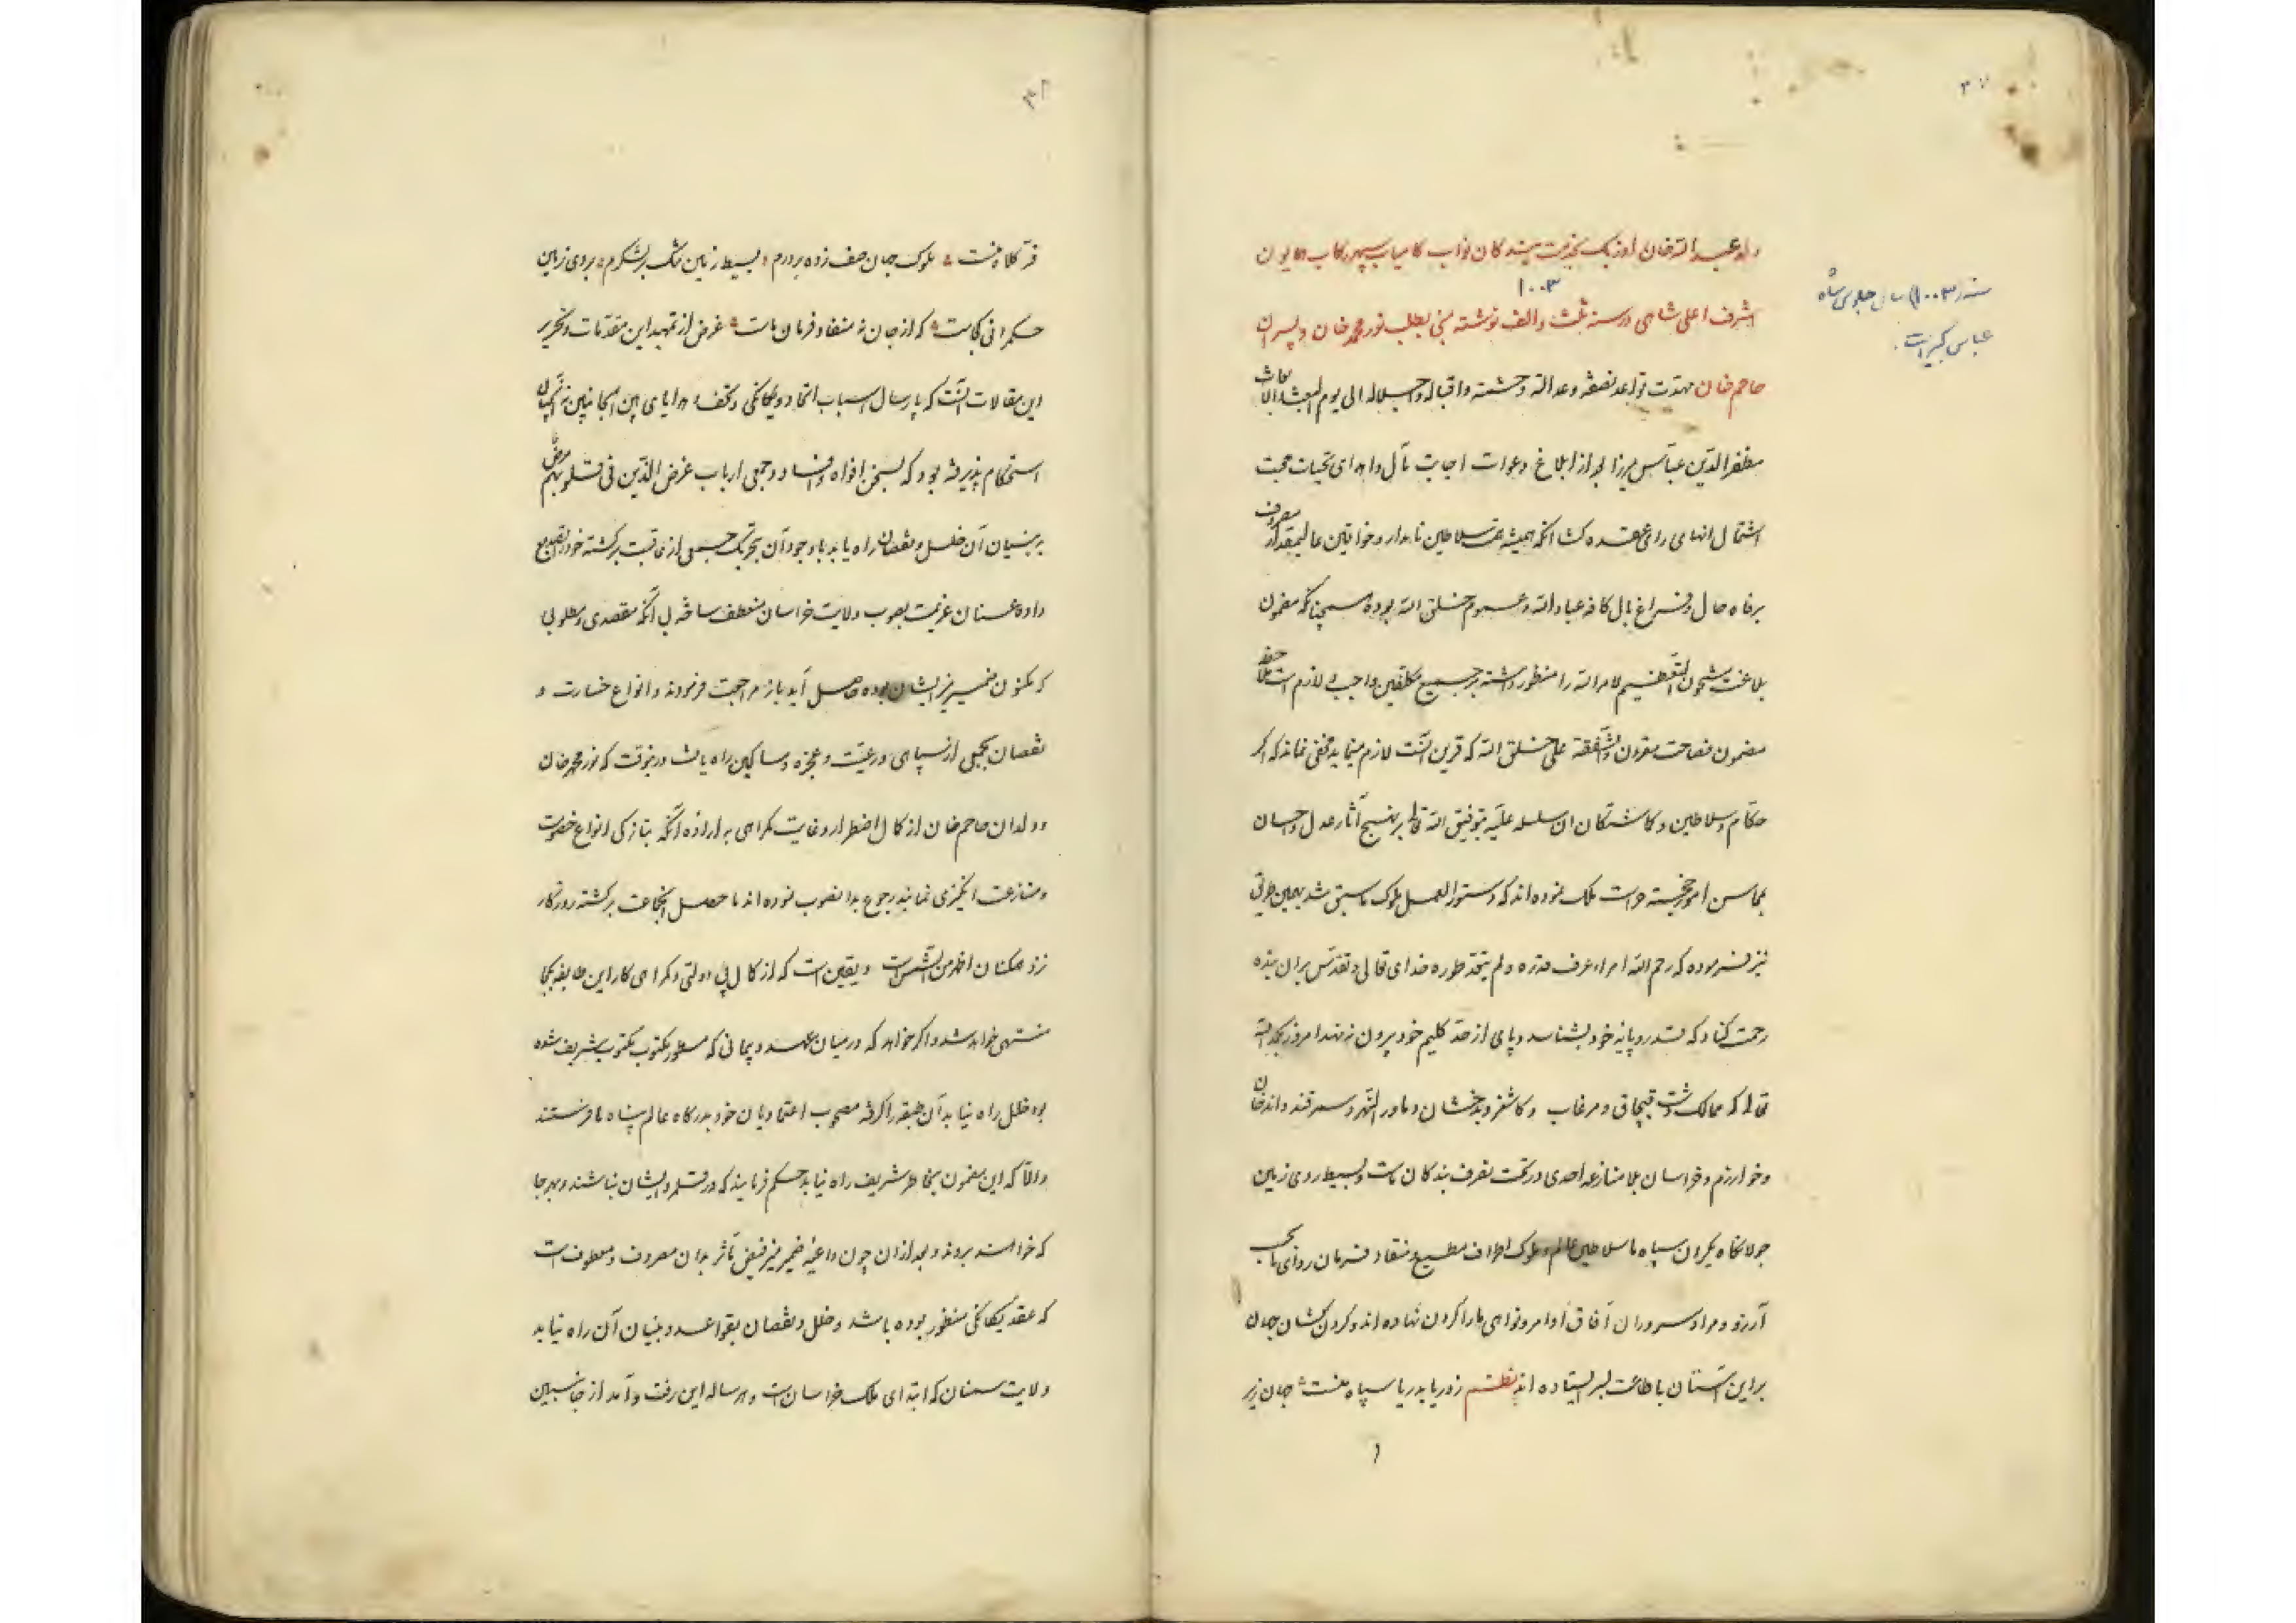 ۳۷
ولد عبدالله خان اوزبک بخدمت بندگان نواب کامیاب سپهر رکاب همایون
۱۰۰۳
اشرف اعلی شاهی در سنه ثلث و الف نوشته مبنی بطلب نور محمد خان و پسران
سنه ۱۰۰۳ سال جلوس شاه
عباس کبیر است
حاجم خان مهدت قواعد نصفته و عدالته و حشمته و اقباله و جلاله الی یوم
مظفر الدین عباس میرزا بعد از ابلاغ دعوات اجابت مآل و اهدای تحیات محبت
اشتمال انهای رای عقده گشا آنکه همیشه همت سلاطین نامدار و خواقین عالیمقدار مصروف
برفاه حال و فراغ بال کافه عباد الله و عموم خلق الله بوده همچنانکه مضمون
بلاغت مشحون التعظیم لامر الله را منظور داشته بر جمیع مکلفین واجب و لازم است ملاحظه
مضمون فصاحت مقرون والشفقة علی خلق الله که قرین آنست لازم مینماید مخفی نماند که اگر
حکام و سلاطین و گماشتگان ان سلسله علیه بتوفیق الله تعالی بر نهج آثار عدل و احسان
بمحاسن امور خجسته حراست ملک نموده اند که دستور العمل ملوک ماسبق شد بهمین طریق
نیز فرموده که رحم الله امراء عرف قدره و لم یتعد طوره خدای تعالی و تقدس بران بنده
رحمت کناد که قدر و پایه خود بشناسد و پای از حد کلیم خود بیرون ننهد امروز بحمد الله
تعالی که ممالک دشت قبچاق و مرغاب و کاشغر و بدخشان و ماورالنهر و سمرقند و اندخان
و خوارزم و خراسان بلا منازعه احدی در تحت تصرف بندگان ماست و بسیط روی زمین
جولانگاه یکران سپاه ما سلاطین عالم و ملوک اطراف مطیع و منقاد فرمان روای ما بحسب
آرزو و مراد سروران آفاق اوامر و نواهی ما را گردن نهاده اند و گردن کشان جهان
براین آستان باطاعت بسر ایستاده اند نظم ز دریا بدریا سپاه منست جهان زیر
۳۸
فر کلاه منست ملوک جهان صف زده بر درم بسیط زمین تنگ بر لشکرم بروی زمین
حکمرانی کجاست که از جان نه منقاد فرمان ماست غرض از تمهید این مقدمات و تحریر
این مقالات آنست که بارسال اسباب اتحاد و یگانگی و تحف و هدایای بین الجانبین
استحکام پذیرفته بود که بسخن افواه و افساد و جمعی ارباب غرض الذین فی قلوبهم مرض
بر بنیان آن خلل و نقصان راه یابد با وجود آن بتحریک جمعی از عاقبت برگشته خود را تصدیع
داده عنان عزیمت بصوب ولایت خراسان منعطف ساخته بی آنکه مقصدی و مطلوبی
که مکنون ضمیر منیر ایشان بوده حاصل آید باز مراجعت فرمودند و انواع خسارت و
نقصان بجمعی از سپاهی و رعیت و عجزه و مساکین راه یافت درینوقت که نور محمد خان
و ولدان حاجم خان از کمال اضطرار و غایت گمراهی به اراده آنکه بتازگی انواع خصومت
و منازعت انگیزی نمایند رجوع بدانصوب نموده اند ماحصل انجماعت برگشته روزگار
نزد همگنان اظهر من الشمس است و یقین است که از کمال بی دولتی و گمراهی کار این طایفه بکجا
منتهی خواهد شد و اگر خواهد که در میان عهد و پیمانی که مسطور مکتوب شریف شده
بود خلل راه نیابد آن طبقه را گرفته مصحوب اعتمادیان خود بدرگاه عالم پناه ما فرستند
والا که این مضمون بخاطر شریف راه نیابد حکم فرمایند که در قلمرو ایشان نباشند و بهر جا
که خواهند بروند و بعد از ان چون داعیه ضمیر منیر فیض تأثر بدان مصروف و معطوف است
که عقد یگانگی منظور بوده باشد و خلل و نقصان بقواعد و بنیان آن راه نیابد
ولایت سمنان که ابتدای ملک خراسان است و هر ساله این رفت و آمد از جانبین